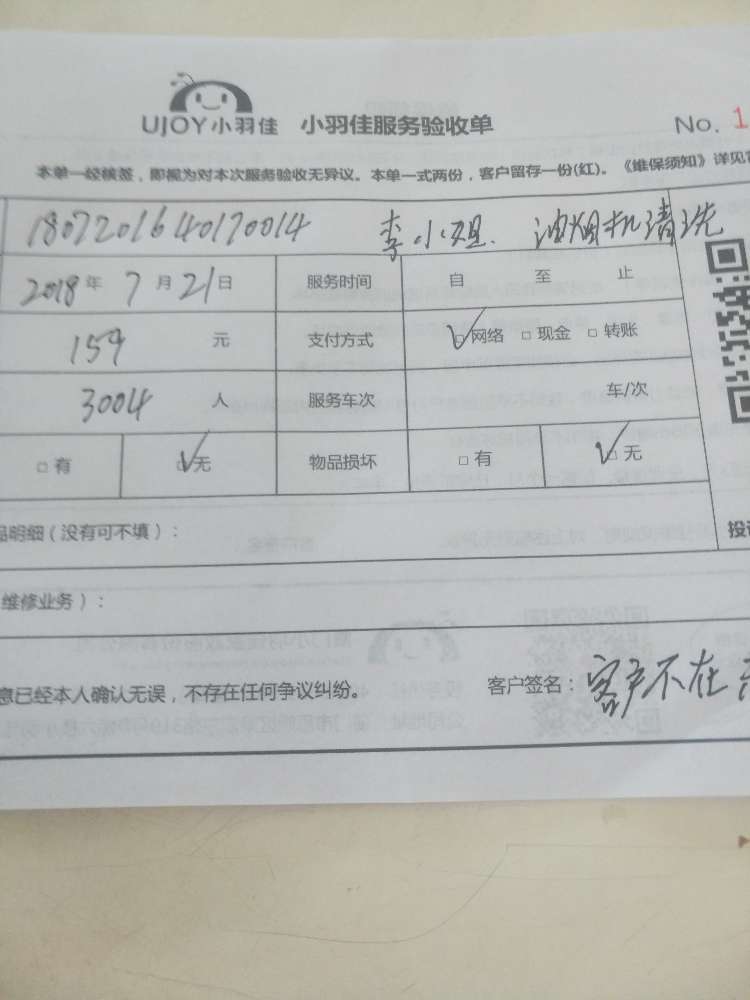 UJOY小羽佳 小羽佳服务验收单 No. 1
本单一经核签，即视为对本次服务验收无异议。本单一式两份，客户留存一份(红)。《维保须知》详见
1807201640170014 李小姐. 油烟机清洗
2018年 7月21日 服务时间 自 至 止
159 元 支付方式 □网络 □现金 □转账
3004 人 服务车次 车/次
□有 □无 物品损坏 □有 □无
品明细（没有可不填）： 投
维修业务）：
息已经本人确认无误，不存在任何争议纠纷。 客户签名：客户不在